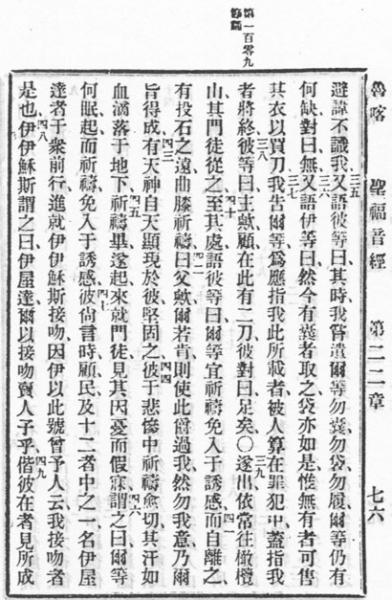 第一百零九
魯喀　聖福音經　第二二章　七六
避諱不識我、三五又語彼等曰、其時我嘗遣爾等勿囊勿袋勿履、爾等仍有
何缺、對曰無、三六又語伊等曰、然今有囊者取之、袋亦如是、惟無有者可售
其衣以買刀、三七我吿爾等、爲應指我此所載者、被人算在罪犯中、蓋指我
者將終、三八彼等曰、主歟、顧在此有二刀、彼對曰、足矣、〇三九遂出依常往橄欖
山、其門徒從之、四十至其處、語彼等曰、爾等宜祈禱免入于誘感、四一而自離之
有投石之遠、曲膝祈禱、四二曰、父歟、爾若肯、則使此爵過我、然勿我意、乃爾
旨得成、四三有天神自天顯現於彼堅固之、四四彼于悲慘中祈禱愈切、其汗如
血滴落于地下、四五祈禱畢、遂起來就門徒、見其因憂而假寐、四六謂之曰、爾等
何眠、起而祈禱免入于誘感、四七彼尙言時、顧民及十二者中之一名伊屋
達者于衆前行、進就伊伊穌斯接吻、因伊以此號曾予人云、我接吻者
是也、四八伊伊穌斯謂之曰、伊屋達、爾以接吻賣人子乎、四九偕彼在者、見所成